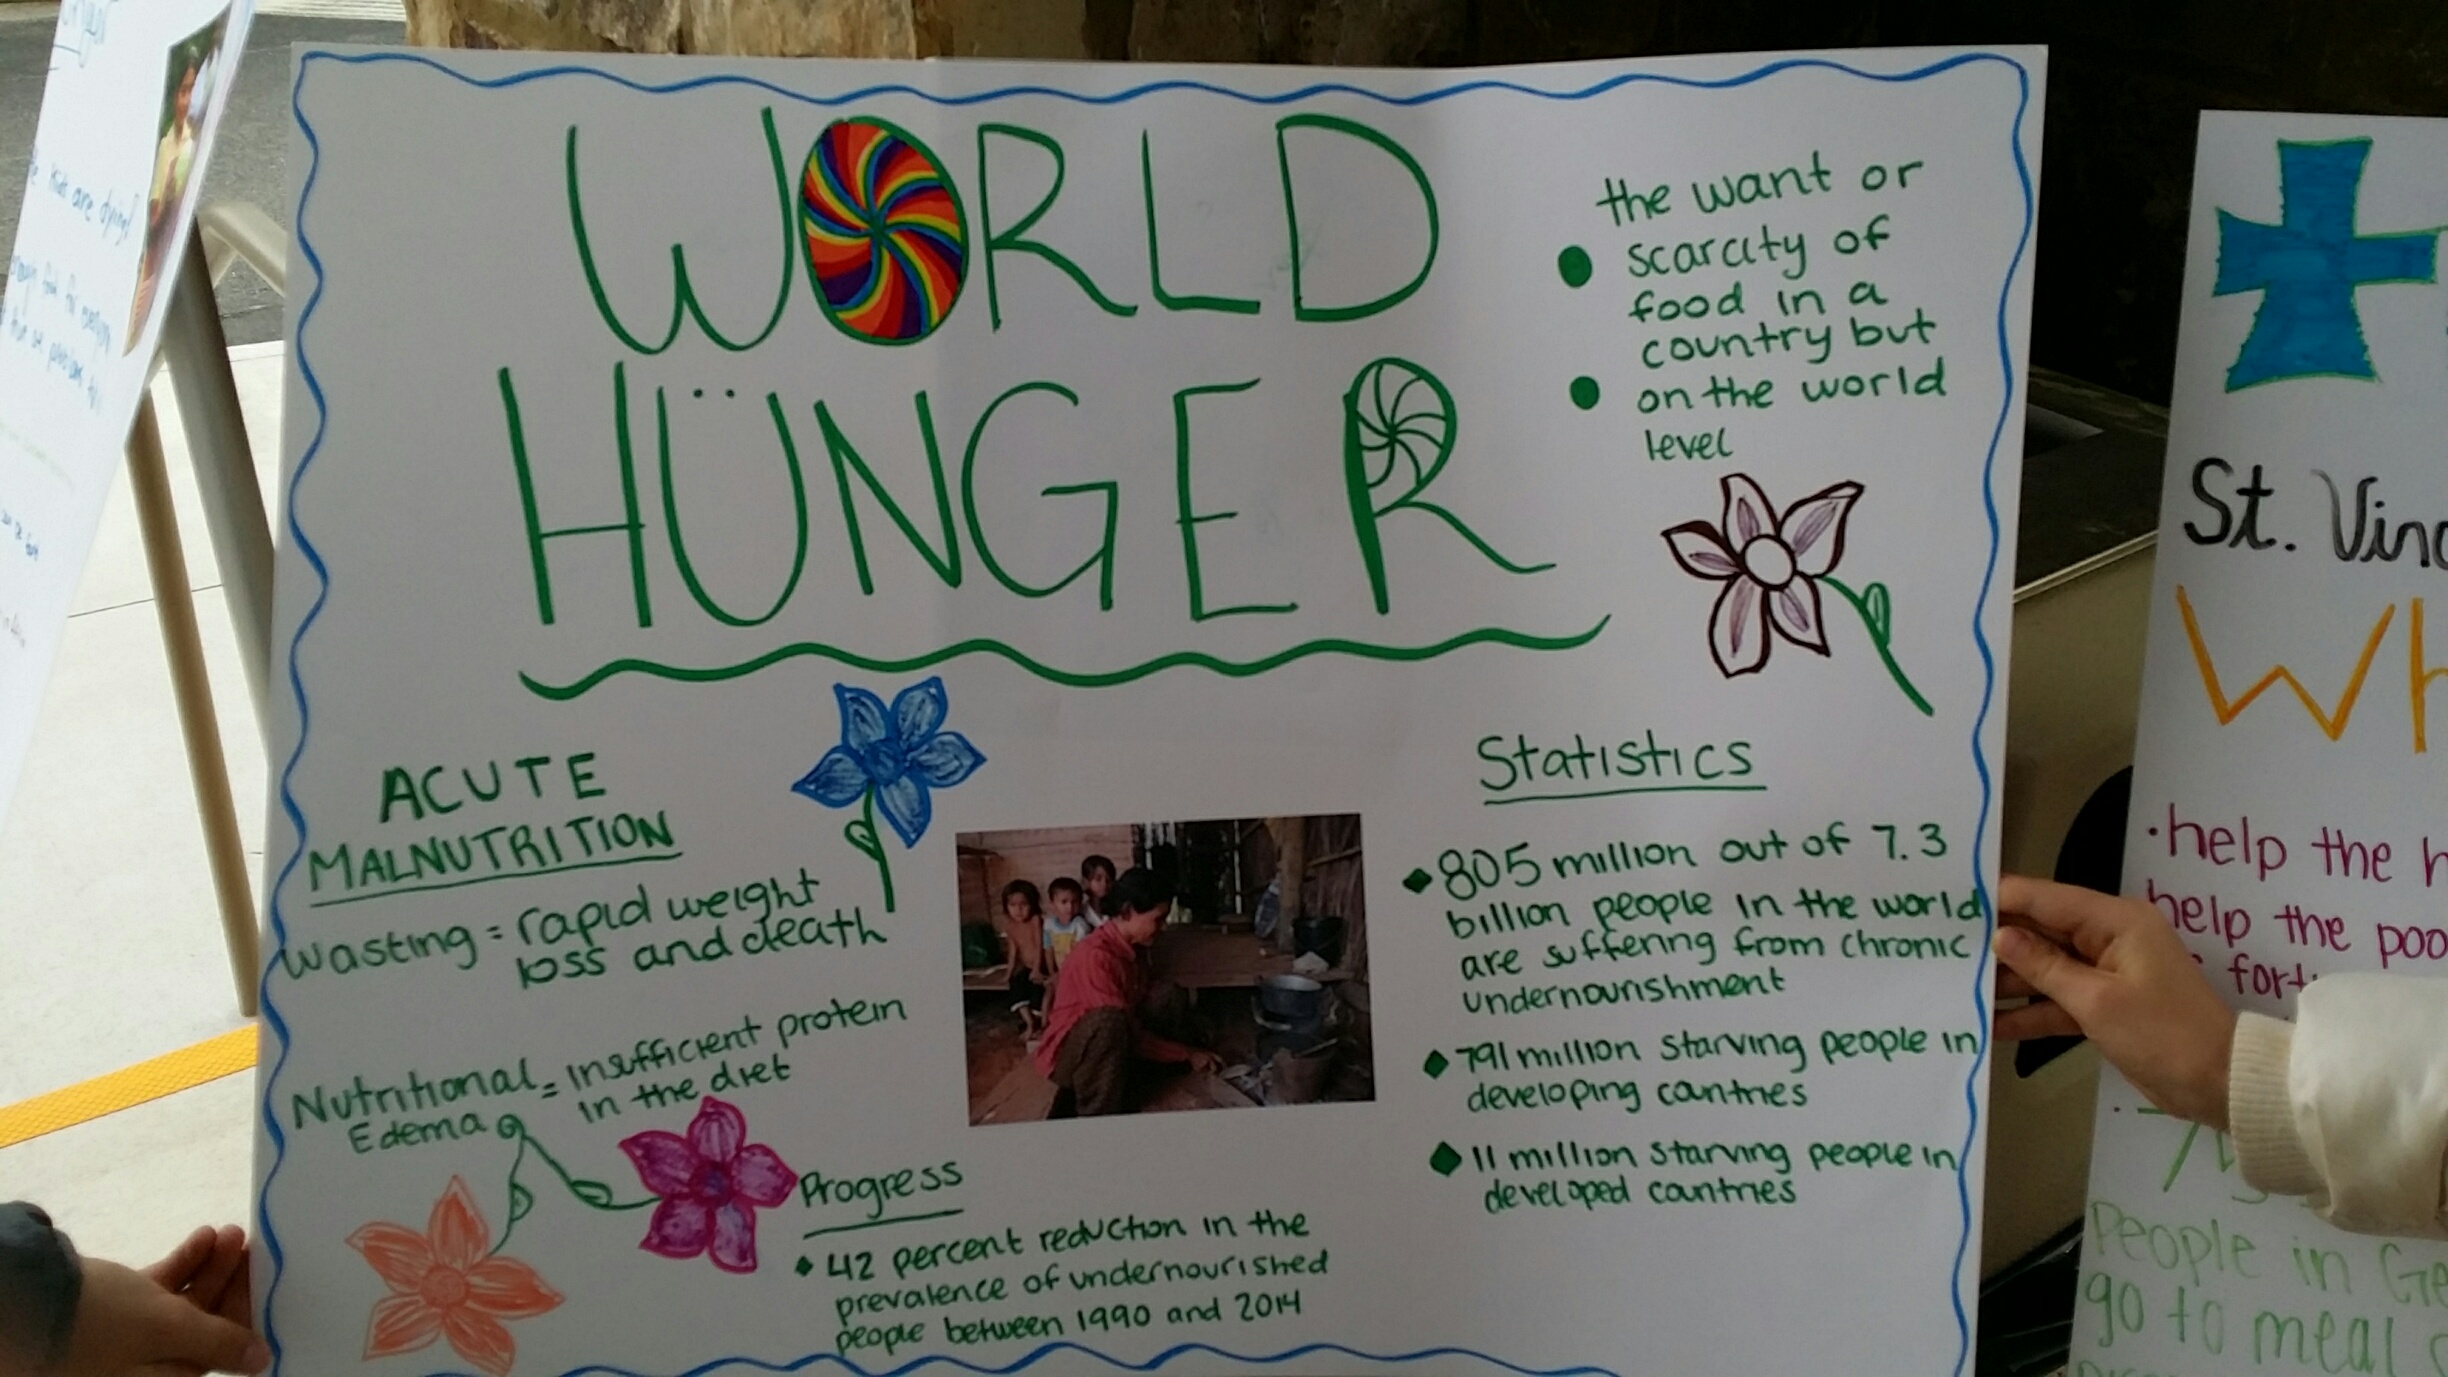 WORLD
HÜNGER
the want or
scarcity of
food in a
country but
on the world
level
ACUTE
MALNUTRITION
Wasting = rapid weight
loss and death
Nutritional = insufficient protein
Edema in the diet
Progress
42 percent reduction in the
prevalence of undernourished
people between 1990 and 2014
Statistics
805 million out of 7.3
billion people in the world
are suffering from chronic
undernourishment
791 million starving people in
developing countries
11 million starving people in
developed countries
kids are dying!
St.
help the
help the
People in
go to meal